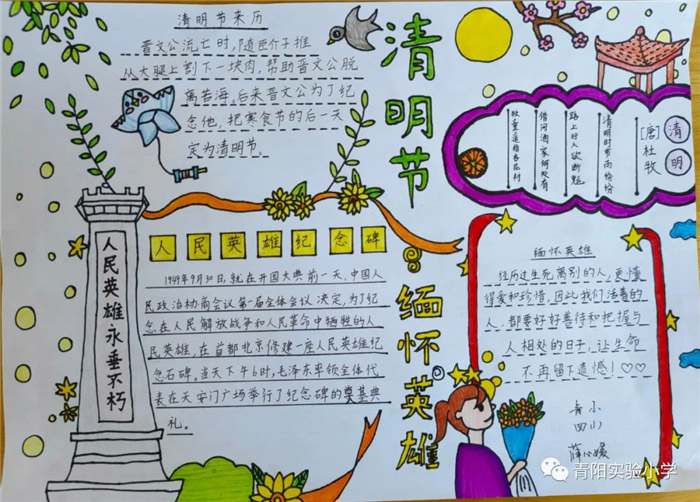 清明节来历
晋文公流亡时,随臣介子推
从大腿上割下一块肉,帮助晋文公脱
离苦海,后来晋文公为了纪
念他,把寒食节的后一天
定为清明节。
清明节
清明
[唐]杜牧
清明时节雨纷纷
路上行人欲断魂
借问酒家何处有
牧童遥指杏花村
人民英雄永垂不朽
人民英雄纪念碑
1949年9月30日,就在开国大典前一天,中国人
民政治协商会议第一届全体会议决定,为了纪
念在人民解放战争和人民革命中牺牲的人
民英雄,在首都北京修建一座人民英雄纪
念石碑,当天下午6时,毛泽东率领全体代
表在天安门广场举行了纪念碑的奠基典
礼。
缅怀英雄
缅怀英雄
经历过生死离别的人,更懂
得爱和珍惜,因此我们活着的
人,都要好好善待和把握与
人相处的日子,让生命
不再留下遗憾!♡♡
青小
四小
青阳实验小学